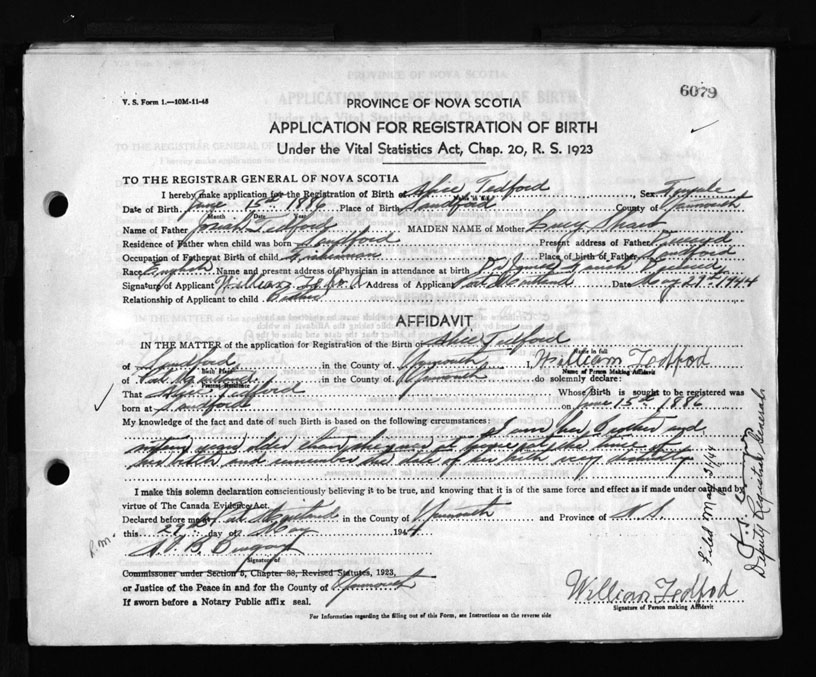 6079
V. S. Form 1.—10M-11-43
PROVINCE OF NOVA SCOTIA
APPLICATION FOR REGISTRATION OF BIRTH
Under the Vital Statistics Act, Chap. 20, R. S. 1923
TO THE REGISTRAR GENERAL OF NOVA SCOTIA
I hereby make application for the Registration of Birth of Alice Tedford Sex Female
Date of Birth June 15th 1886 Place of Birth Sandford County of Yarmouth
Month Date Year
Name of Father Josiah Tedford MAIDEN NAME of Mother Lucy Shaw
Residence of Father when child was born Sandford Present address of Father Deceased
Occupation of Father at Birth of child Fisherman Place of birth of Father Sandford
Race English Name and present address of Physician in attendance at birth
Signature of Applicant William Tedford Address of Applicant Port Maitland Date May 29th 1944
Relationship of Applicant to child Brother
AFFIDAVIT
IN THE MATTER of the application for Registration of the Birth of Alice Tedford
Name in full
of Sandford in the County of Yarmouth I, William Tedford
Birth Place Name of Person Making Affidavit
of Port Maitland in the County of Yarmouth do solemnly declare:
Present Residence
That Alice Tedford Whose Birth is sought to be registered was
born at Sandford on June 15th 1886
My knowledge of the fact and date of such Birth is based on the following circumstances: I am her Brother and
years older than she was at home at the time of
her birth and remember the date of her birth very distinctly
I make this solemn declaration conscientiously believing it to be true, and knowing that it is of the same force and effect as if made under oath and by
virtue of The Canada Evidence Act.
Declared before me at Pt. Maitland in the County of Yarmouth and Province of N.S.
this 29th day of May 1944
Signature of
Commissioner under Section 5, Chapter 38, Revised Statutes, 1923,
or Justice of the Peace in and for the County of Yarmouth
If sworn before a Notary Public affix seal.
William Tedford
Signature of Person making Affidavit
For Information regarding the filling out of this Form, see Instructions on the reverse side
Filed May 31/44
Deputy Registrar General